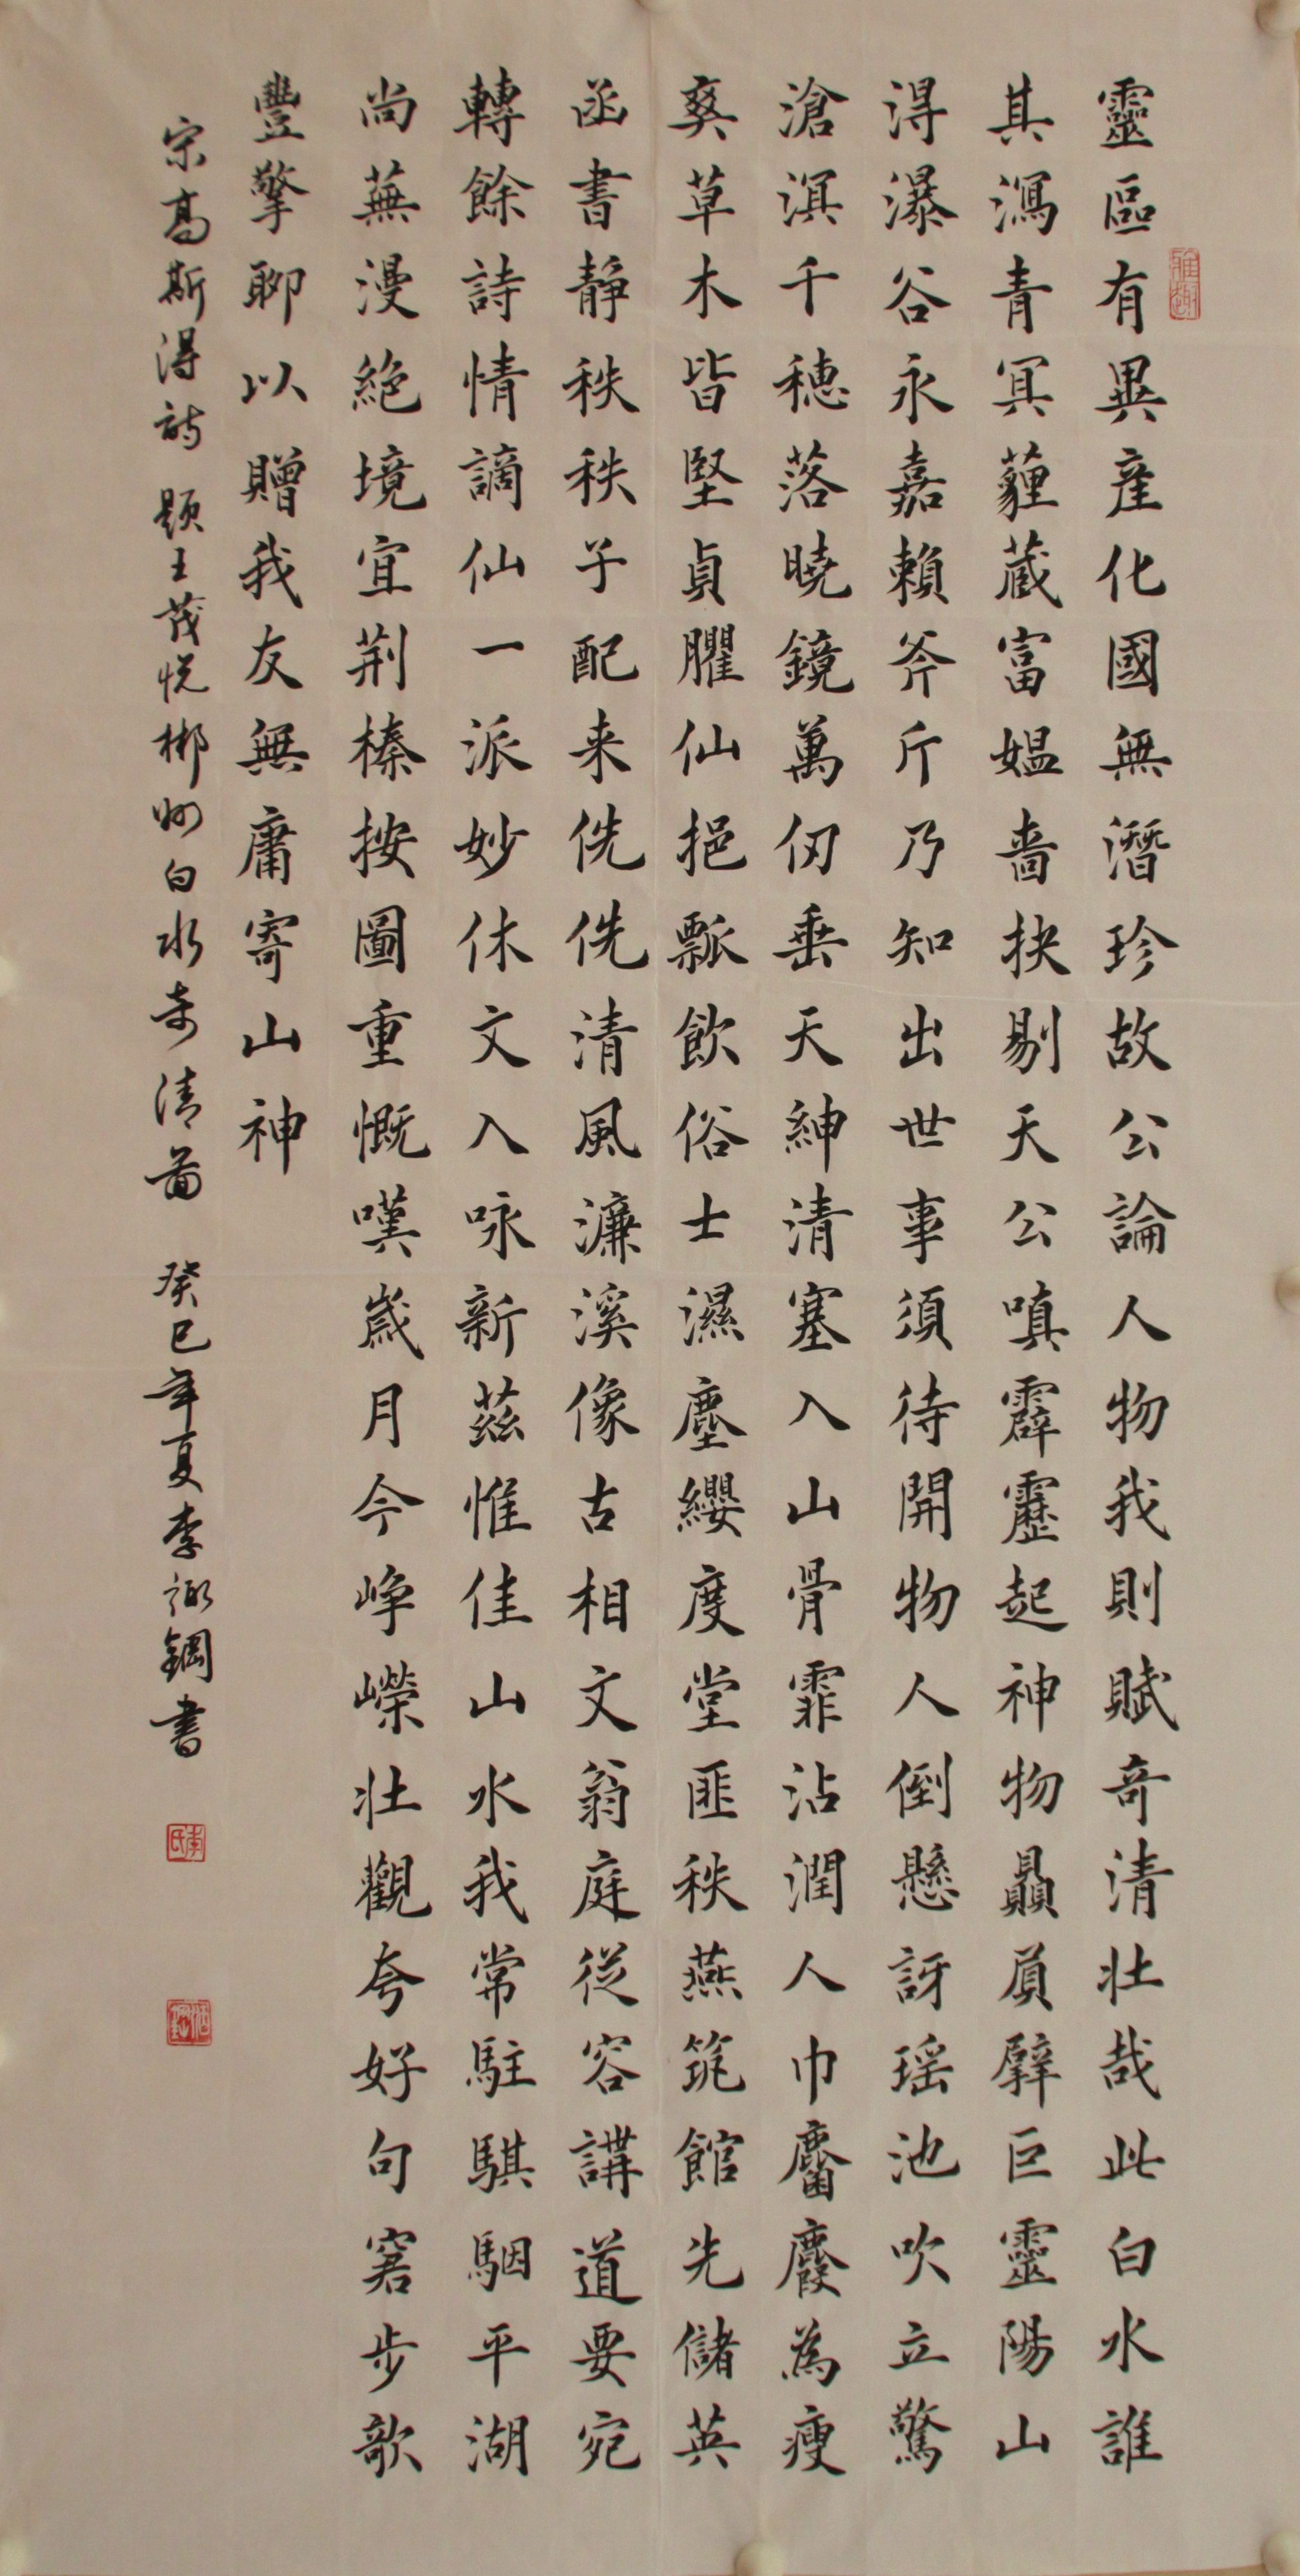 靈區有異産化國無潛珍故公論人物我則賦奇清壯哉此白水誰
其瀉青冥薶藏富媼嗇抉剔天公嗔霹靂起神物贔屓擘巨靈陽山
得瀑谷永嘉賴斧斤乃知出世事須待開物人倒懸訝瑶池吹立驚
滄溟千穗落曉鏡萬仞垂天紳清塞入山骨霏沾潤人巾麕麚為瘦
爽草木皆堅貞臞仙挹瓢飲俗士濕塵纓度堂匪秩燕筑館先儲英
函書靜秩秩子配来侁侁清風濂溪像古相文翁庭從容講道要宛
轉餘詩情謫仙一派妙休文入咏新茲惟佳山水我常駐騏駰平湖
尚蕪漫絶境宜荆榛按圖重慨嘆歲月今崢嶸壯觀夸好句窘步歌
豐擎聊以贈我友無庸寄山神
宗高斯得詩 题王茂悦郴州白水奇清圖 癸巳年夏李詠鋼書
雅趣
李氏